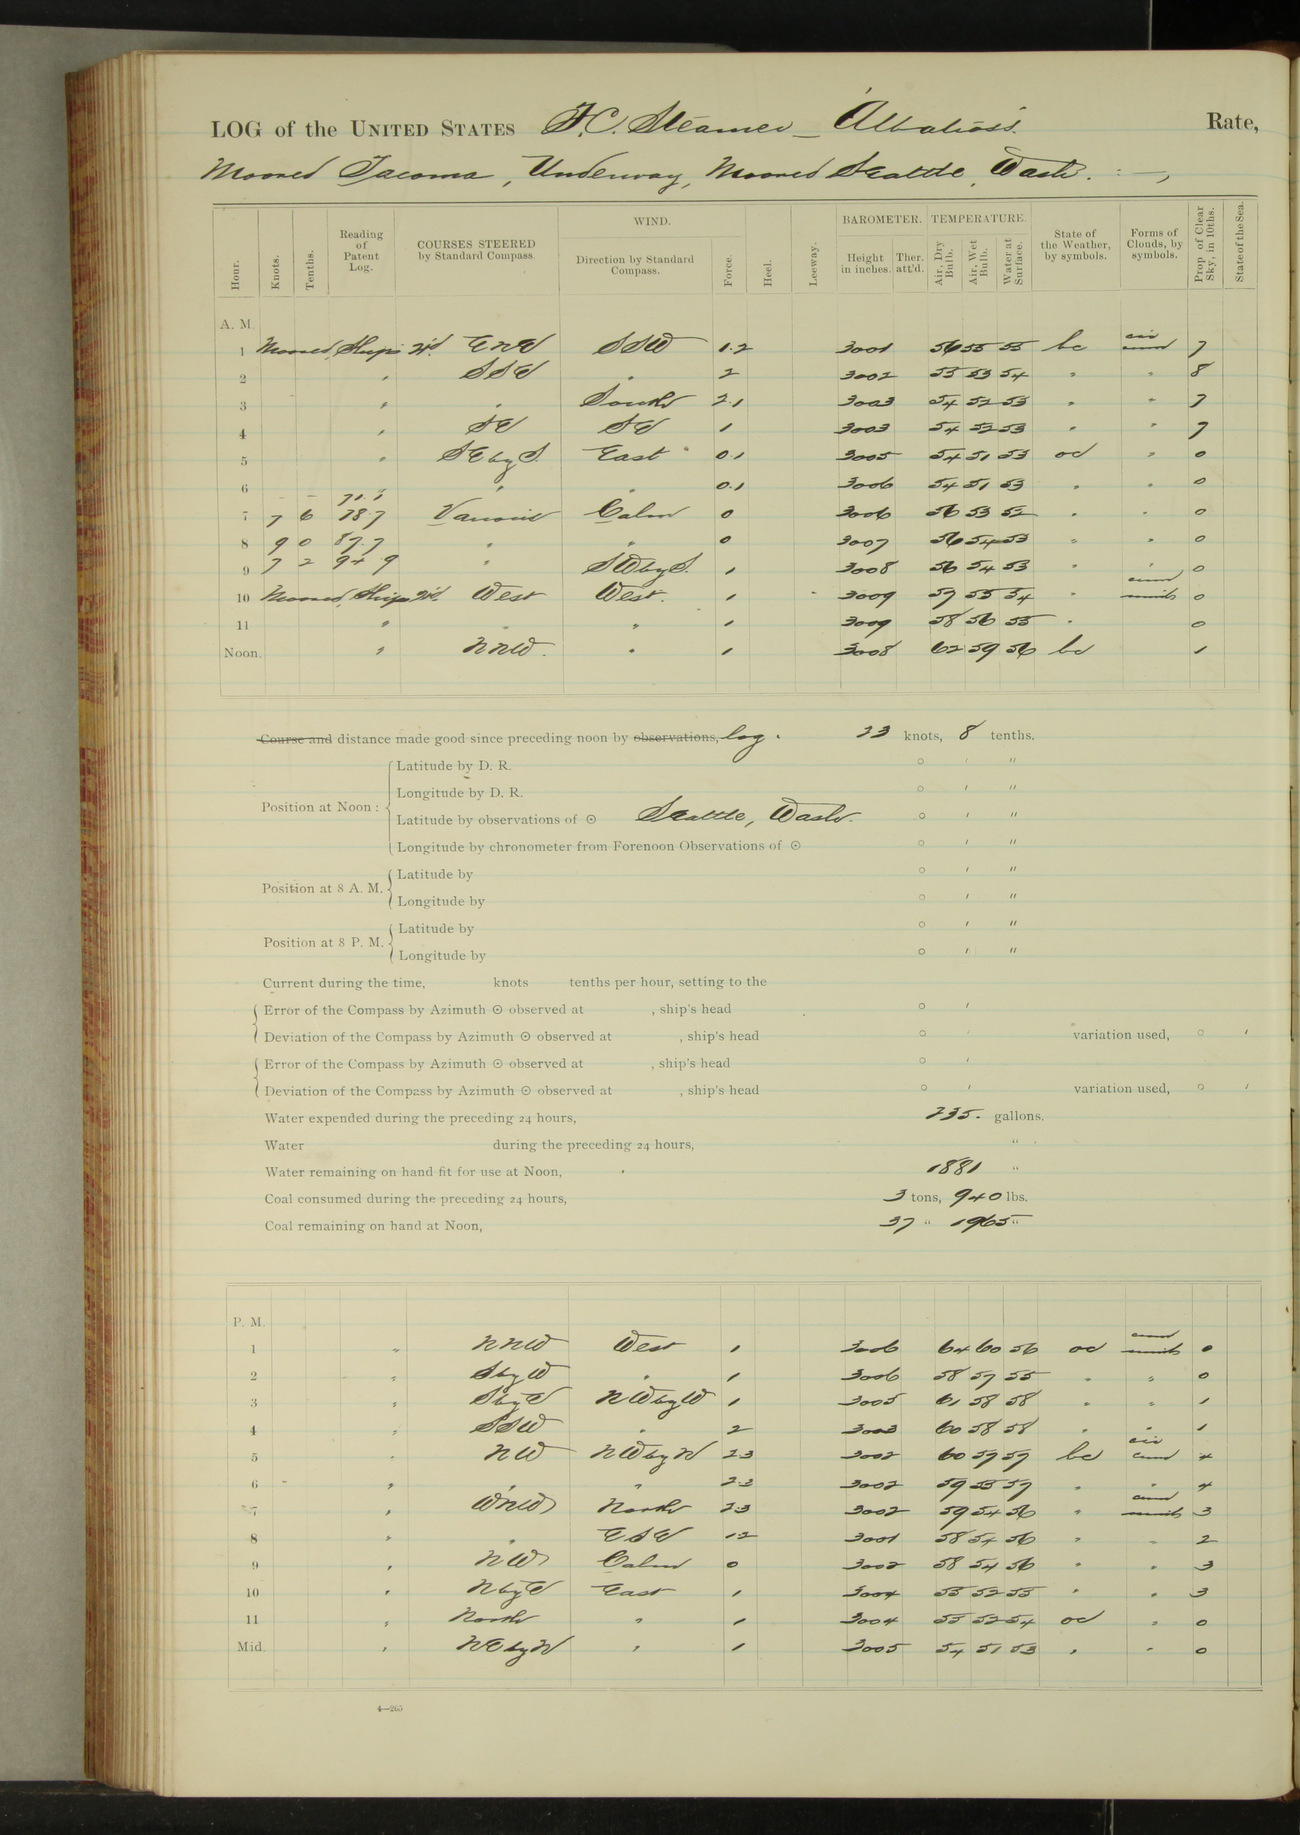 LOG of the UNITED STATES F.C. Steamer Albatross. Rate,
Moored Tacoma, Underway, Moored Seattle, Wash.
Hour. Knots. Tenths. Reading of Patent Log. COURSES STEERED by Standard Compass. WIND. Direction by Standard Compass. Force. Heel. Leeway. BAROMETER. Height in inches. Ther. att'd. TEMPERATURE. Air, Dry Bulb. Air, Wet Bulb. Water at Surface. State of the Weather, by symbols. Forms of Clouds, by symbols. Prop. of Clear Sky, in 10ths. State of the Sea.
A. M.
1 Moored, Ship's H'd. ENE SSW 1.2 3001 56 55 55 bc cir cum 7
2 " SSE " 2 3002 55 53 54 " " 8
3 " " South 2.1 3003 54 52 53 " " 7
4 " SE SE 1 3003 54 52 53 " " 7
5 " SE by S. East 0.1 3005 54 51 53 oc " 0
6 - - 71.1 " " 0.1 3006 54 51 53 " " 0
7 7 6 78.7 Various Calm 0 3006 56 53 52 " " 0
8 9 0 87.7 " " 0 3007 56 54 53 " " 0
9 7 2 94 9 " SW by S. 1 3008 56 54 53 " " 0
10 Moored, Ship's H'd. West West. 1 3009 57 55 54 " cum nimb 0
11 " " " 1 3009 58 56 55 " 0
Noon. " NNW. " 1 3008 62 59 56 bc 1
Course and distance made good since preceding noon by observations, log. 23 knots, 8 tenths.
Position at Noon: Latitude by D. R. ° ' "
Longitude by D. R. ° ' "
Latitude by observations of ☉ Seattle, Wash. ° ' "
Longitude by chronometer from Forenoon Observations of ☉ ° ' "
Position at 8 A. M. Latitude by ° ' "
Longitude by ° ' "
Position at 8 P. M. Latitude by ° ' "
Longitude by ° ' "
Current during the time, knots tenths per hour, setting to the
Error of the Compass by Azimuth ☉ observed at , ship's head ° '
Deviation of the Compass by Azimuth ☉ observed at , ship's head ° ' variation used, ° '
Error of the Compass by Azimuth ☉ observed at , ship's head ° '
Deviation of the Compass by Azimuth ☉ observed at , ship's head ° ' variation used, ° '
Water expended during the preceding 24 hours, 235. gallons.
Water during the preceding 24 hours, "
Water remaining on hand fit for use at Noon, 1881 "
Coal consumed during the preceding 24 hours, 3 tons, 940 lbs.
Coal remaining on hand at Noon, 37 " 1965 "
P. M.
1 " NNW West 1 3006 64 60 56 oc cum nimb 0
2 " S by W " 1 3006 58 57 55 " " 0
3 " S by E NW by W 1 3005 61 58 58 " " 1
4 " SSW " 2 3003 60 58 58 " " 1
5 " NW NW by N 2 3 3002 60 59 57 bc cir cum 4
6 " " " 2.3 3002 59 55 57 " " 4
7 " WNW North 2 3 3002 59 54 56 " cum nimb 3
8 " " ESE 1 2 3001 58 54 56 " " 2
9 " NW Calm 0 3002 58 54 56 " " 3
10 " N by E East 1 3004 55 52 55 " " 3
11 " North " 1 3004 55 52 54 oc " 0
Mid. " NE by N " 1 3005 54 51 53 " " 0
4—265